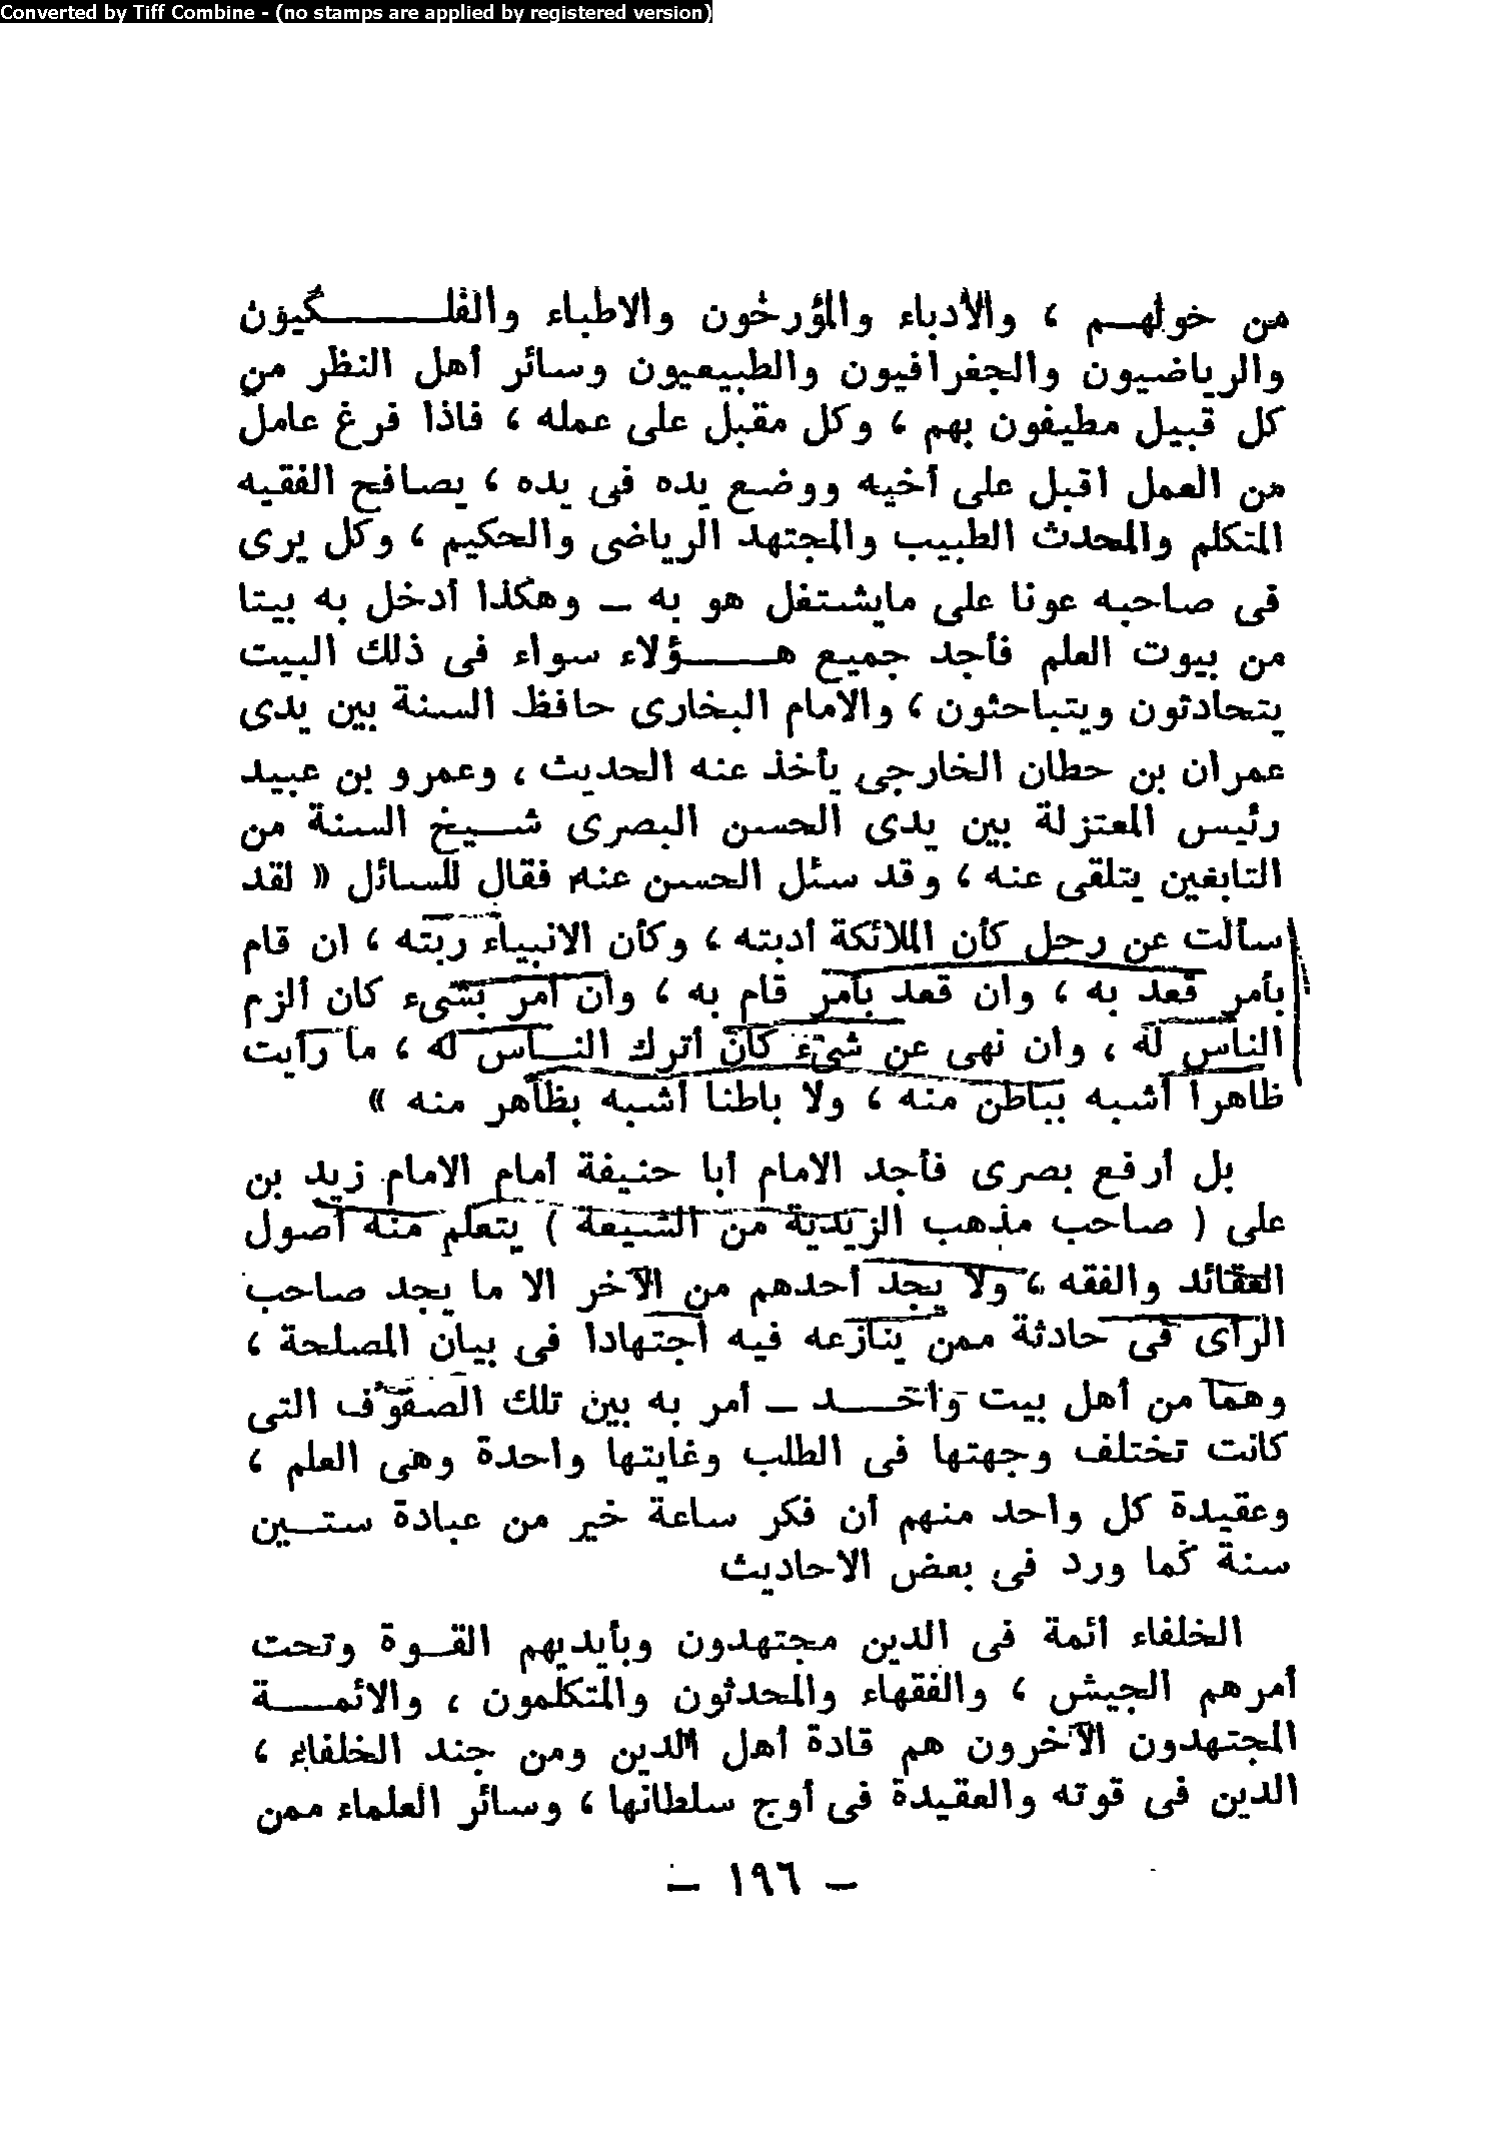 Converted by Tiff Combine - (no stamps are applied by registered version)
من حولهم ، والأدباء والمؤرخون والاطباء والفلكيون
والرياضيون والجغرافيون والطبيعيون وسائر أهل النظر من
كل قبيل مطيفون بهم ، وكل مقبل على عمله ، فاذا فرغ عامل
من العمل اقبل على أخيه ووضع يده فى يده ، يصافح الفقيه
المتكلم والمحدث الطبيب والمجتهد الرياضى والحكيم ، وكل يرى
فى صاحبه عونا على مايشتغل هو به ــ وهكذا أدخل به بيتا
من بيوت العلم فأجد جميع هؤلاء سواء فى ذلك البيت
يتحادثون ويتباحثون ، والامام البخارى حافظ السنة بين يدى
عمران بن حطان الخارجى يأخذ عنه الحديث ، وعمرو بن عبيد
رئيس المعتزلة بين يدى الحسن البصرى شيخ السنة من
التابعين يتلقى عنه ، وقد سئل الحسن عنه فقال للسائل « لقد
سألت عن رجل كأن الملائكة أدبته ، وكأن الانبياء ربته ، ان قام
بأمر قعد به ، وان قعد بأمر قام به ، وان أمر بشىء كان الزم
الناس له ، وان نهى عن شىء كان أترك الناس له ، ما رأيت
ظاهرا أشبه بباطن منه ، ولا باطنا أشبه بظاهر منه »
بل أرفع بصرى فأجد الامام أبا حنيفة أمام الامام زيد بن
على ( صاحب مذهب الزيدية من الشيعة ) يتعلم منه أصول
العقائد والفقه ، ولا يجد أحدهم من الآخر الا ما يجد صاحب
الرأى فى حادثة ممن ينازعه فيه اجتهادا فى بيان المصلحة ،
وهما من أهل بيت واحد ــ أمر به بين تلك الصفوف التى
كانت تختلف وجهتها فى الطلب وغايتها واحدة وهى العلم ،
وعقيدة كل واحد منهم أن فكر ساعة خير من عبادة ستين
سنة كما ورد فى بعض الاحاديث
الخلفاء ائمة فى الدين مجتهدون وبأيديهم القوة وتحت
أمرهم الجيش ، والفقهاء والمحدثون والمتكلمون ، والائمة
المجتهدون الآخرون هم قادة أهل الدين ومن جند الخلفاء ،
الدين فى قوته والعقيدة فى أوج سلطانها ، وسائر العلماء ممن
ــ ١٩٦ ــ